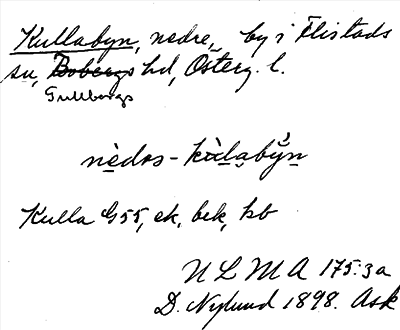 Kullabyn, nedre, by i Flistads
sn, Bobergs hd, Österg. l.
Gullbergs
nèdɷs - kùlaby̆n
Kulla G55, ek, bek, hb
N L M A 175:3a
D. Nylund 1898. Ask